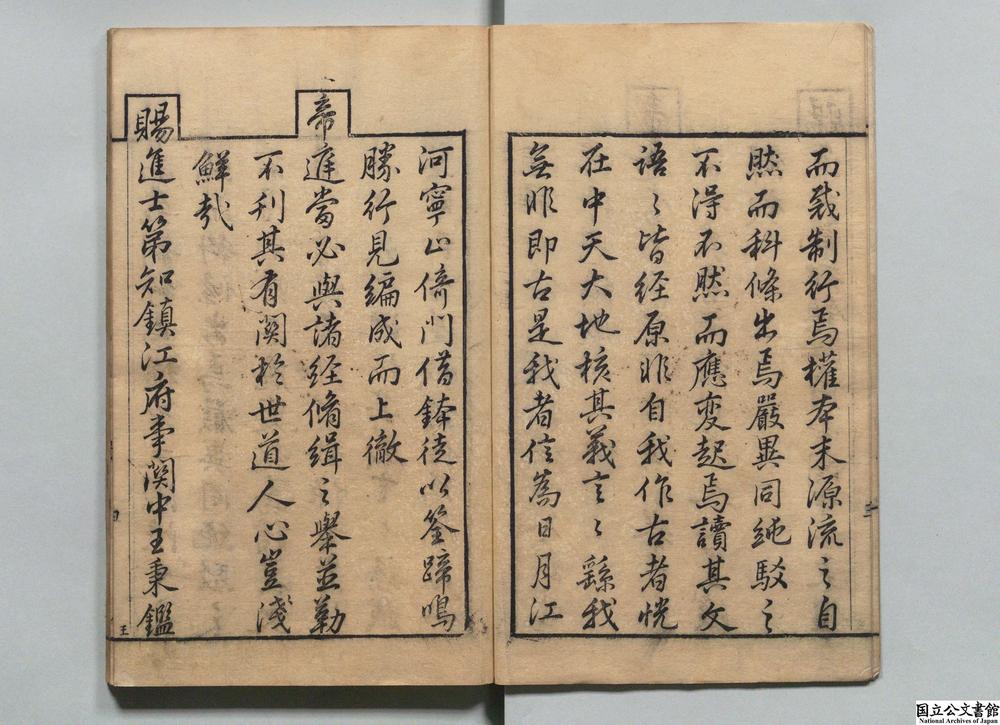 而裁制行焉權本末源流之自
然而科條出焉嚴異同純駁之
不得不然而應変起焉讀其文
語〻皆経原非自我作古者恍
在中天大地核其義言〻繇我
無非即古是我者信為日月江
河寧止倚門借鉢徒以筌蹄鳴
勝行見編成而上徹
帝廷當必與諸経脩緝之舉並勒
不刊其有関於世道人心豈淺
鮮哉
賜進士第知鎮江府事関中王秉鑑
三
四
王
国立公文書館
National Archives of Japan